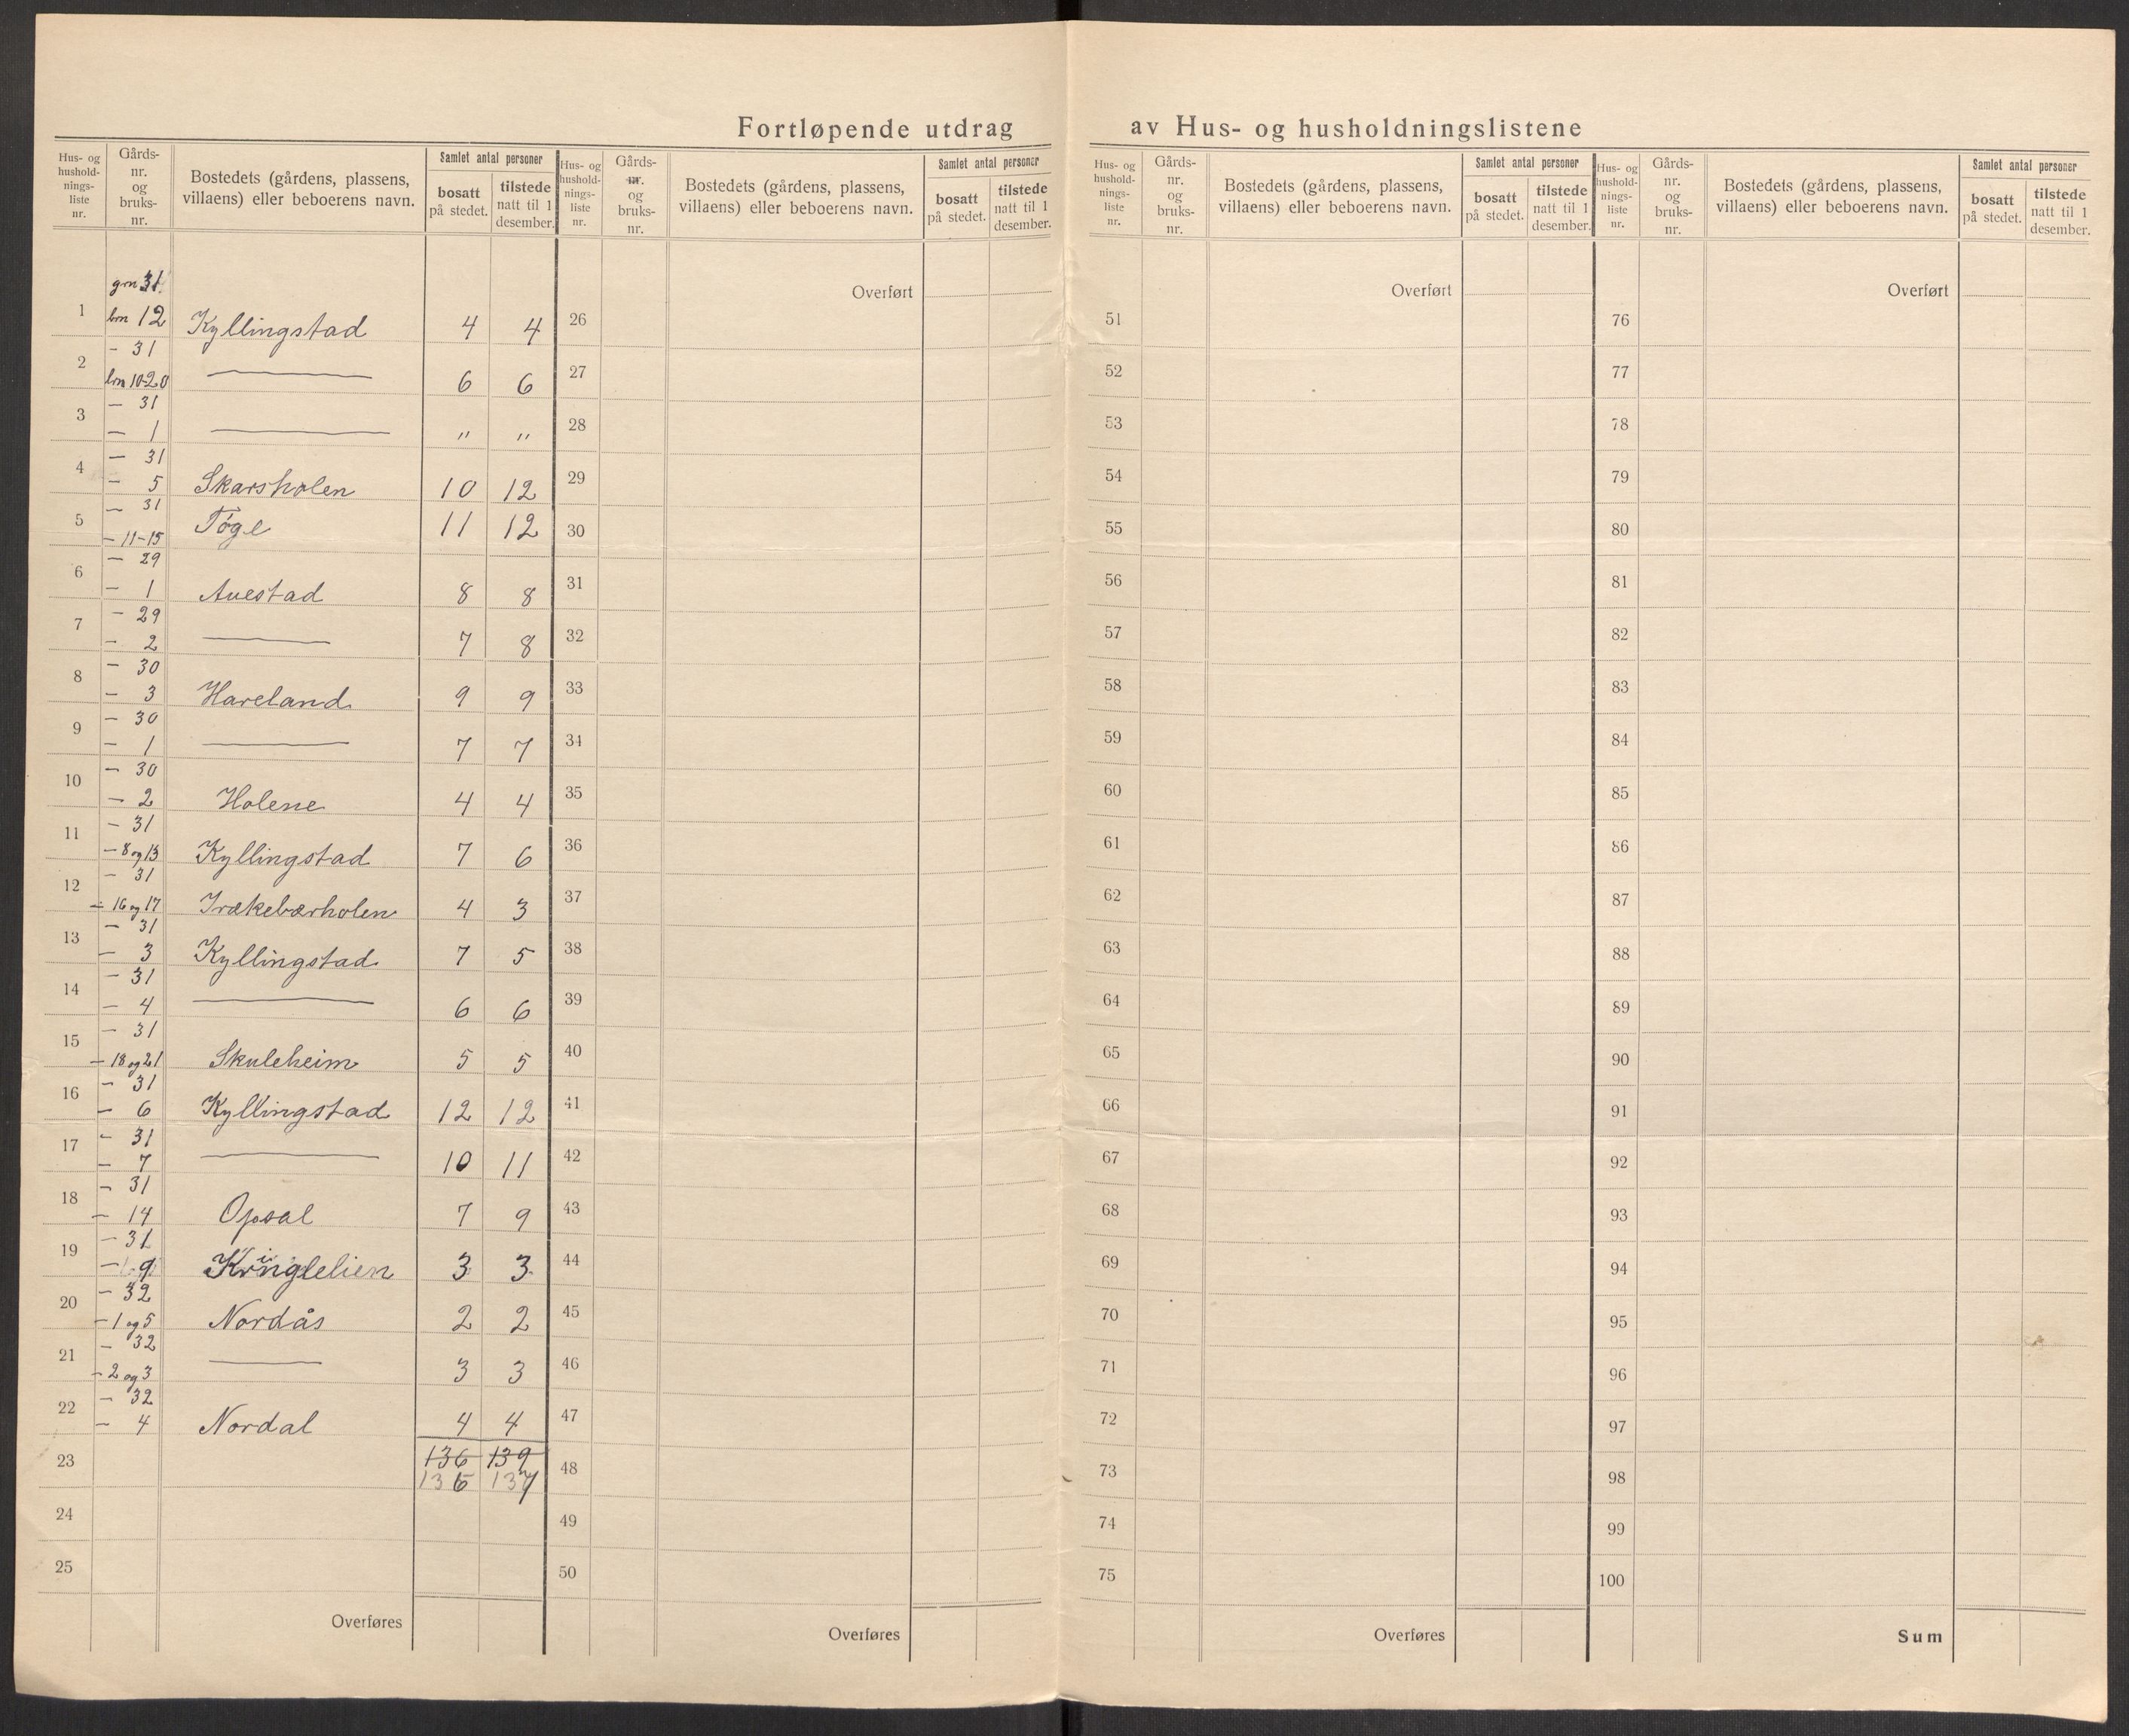 Fortløpende utdrag av Hus- og husholdningslistene
Hus- og husholdnings-liste nr. | Gårds-nr. og bruks-nr. | Bostedets (gårdens, plassens, villaens) eller beboerens navn. | Samlet antal personer | bosatt på stedet. | tilstede natt til 1 desember.
Hus- og husholdnings-liste nr. | Gårds-nr. og bruks-nr. | Bostedets (gårdens, plassens, villaens) eller beboerens navn. | Samlet antal personer | bosatt på stedet. | tilstede natt til 1 desember.
Hus- og husholdnings-liste nr. | Gårds-nr. og bruks-nr. | Bostedets (gårdens, plassens, villaens) eller beboerens navn. | Samlet antal personer | bosatt på stedet. | tilstede natt til 1 desember.
Hus- og husholdnings-liste nr. | Gårds-nr. og bruks-nr. | Bostedets (gårdens, plassens, villaens) eller beboerens navn. | Samlet antal personer | bosatt på stedet. | tilstede natt til 1 desember.
grn 31.
1 brn 12 Kyllingstad 4 4
- 31
2 brn 10-20 — 6 6
- 31
3 - 1 — " "
- 31
4 - 5 Skarsholen 10 12
- 31
5 - 11-15 Tøge 11 12
- 29
6 - 1 Auestad 8 8
- 29
7 - 2 — 7 8
- 30
8 - 3 Hareland 9 9
- 30
9 - 1 — 7 7
- 30
10 - 2 Holene 4 4
- 31
11 - 8 og 13 Kyllingstad 7 6
- 31
12 - 16 og 17 Trækebærholen 4 3
- 31
13 - 3 Kyllingstad 7 5
- 31
14 - 4 — 6 6
- 31
15 - 18 og 21 Skuleheim 5 5
- 31
16 - 6 Kyllingstad 12 12
- 31
17 - 7 — 10 11
- 31
18 - 14 Opsal 7 9
- 31
19 - 9 Kringlelien 3 3
- 32
20 - 1 og 5 Nordås 2 2
- 32
21 - 2 og 3 — 3 3
- 32
22 - 4 Nordal 4 4
23 136 139
136 137
24
25
Overføres
Overført
26
27
28
29
30
31
32
33
34
35
36
37
38
39
40
41
42
43
44
45
46
47
48
49
50
Overføres
Overført
51
52
53
54
55
56
57
58
59
60
61
62
63
64
65
66
67
68
69
70
71
72
73
74
75
Overføres
Overført
76
77
78
79
80
81
82
83
84
85
86
87
88
89
90
91
92
93
94
95
96
97
98
99
100
Sum